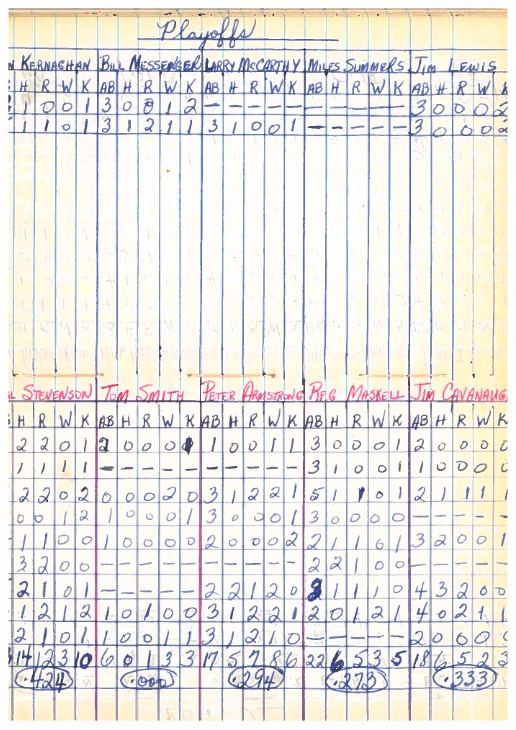 Playoffs
KERNAGHAN BILL MESSENGER LARRY MCCARTHY MILES SUMMERS JIM LEWIS
H R W K AB H R W K AB H R W K AB H R W K AB H R W K
1 0 0 1 3 0 0 1 2 – – – – – – – – – – 3 0 0 0 2
1 1 0 1 3 1 2 1 1 3 1 0 0 1 – – – – – 3 0 0 0 2
STEVENSON TOM SMITH PETER ARMSTRONG REG MASKELL JIM CAVANAUG
H R W K AB H R W K AB H R W K AB H R W K AB H R W K
2 2 0 1 2 0 0 0 1 1 0 0 1 1 3 0 0 0 1 2 0 0 0 0
1 1 1 1 – – – – – – – – – – 3 1 0 0 1 1 0 0 0 0
2 2 0 2 0 0 0 2 0 3 1 2 2 1 5 1 1 0 1 2 1 1 1 1
0 0 1 2 1 0 0 0 1 3 0 0 0 1 3 0 0 0 0 – – – – –
1 1 0 0 1 0 0 0 0 2 0 0 0 2 2 1 1 0 1 3 2 0 0 1
3 2 0 0 2 2 1 0 0
2 1 0 1 – – – – – 2 2 1 2 0 3 1 1 1 0 4 3 2 0 0
1 2 1 2 1 0 1 0 0 3 1 2 2 1 2 0 1 2 1 4 0 2 1 1
2 1 0 1 1 0 0 1 1 3 1 2 1 0 – – – – – 2 0 0 0 0
14 12 3 10 6 0 1 3 3 17 5 7 8 6 22 6 5 3 5 18 6 5 2 3
.424 .000 .294 .273 .333